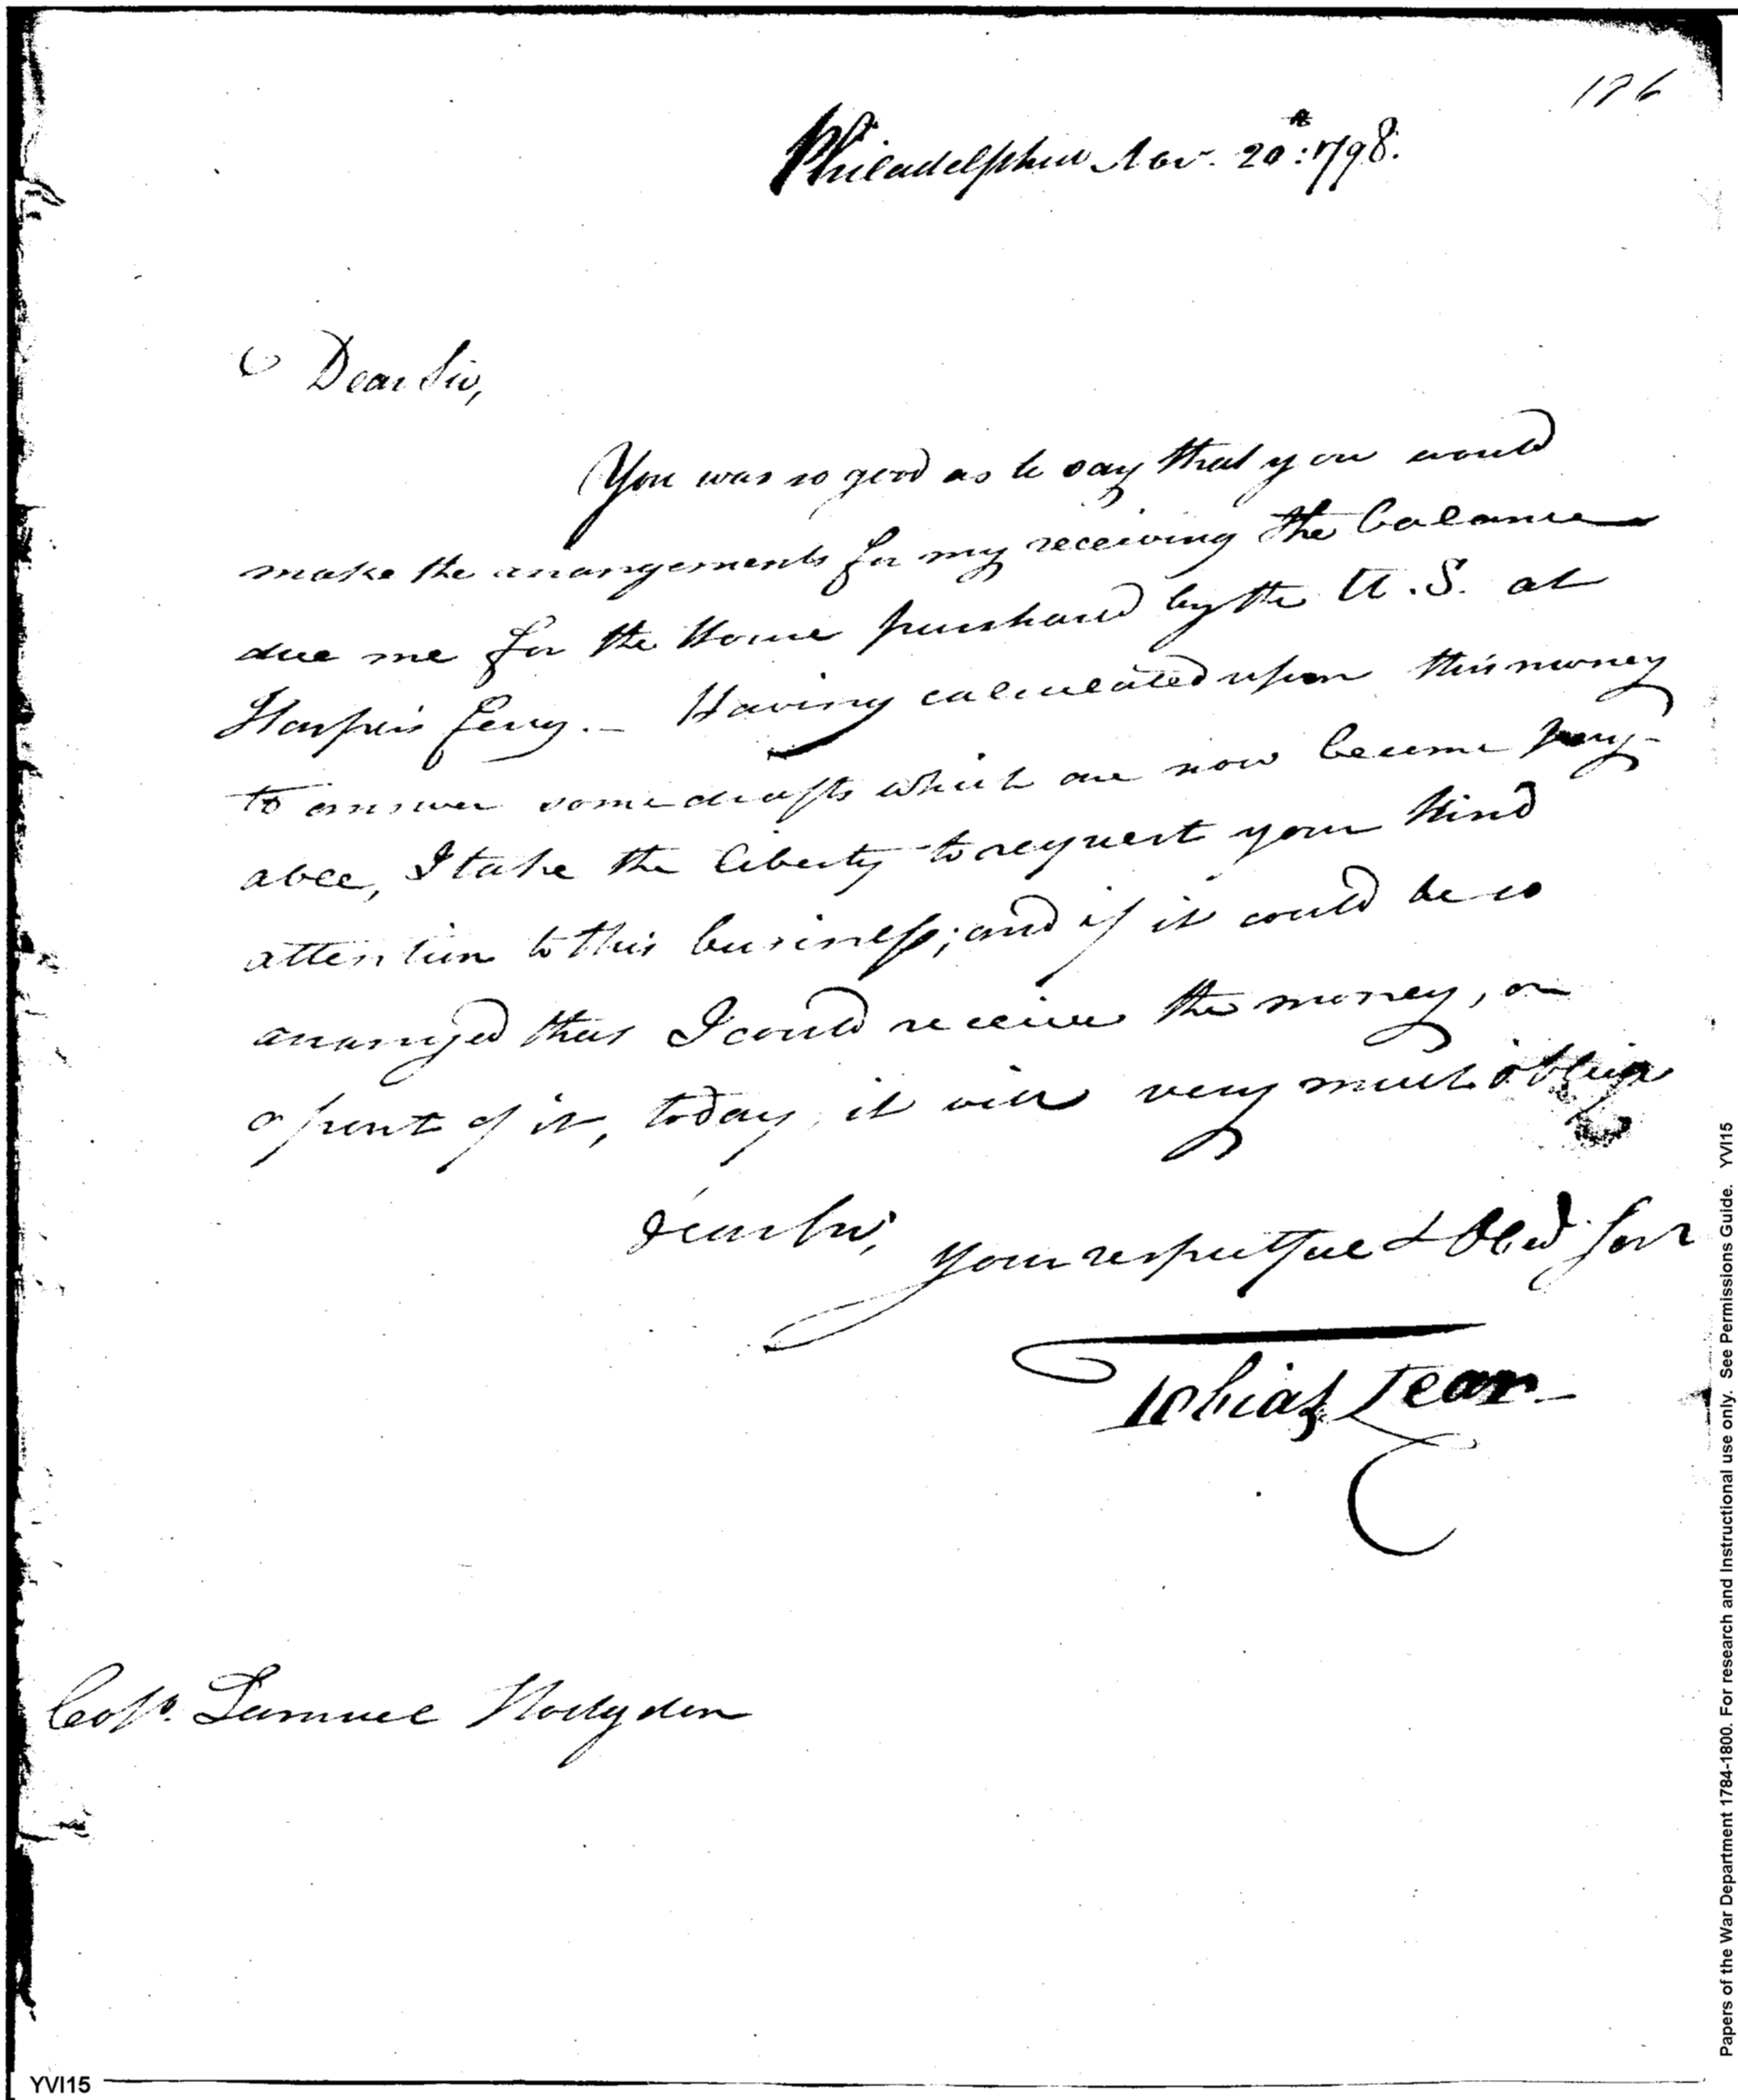 186
Philadelphia Nov. 20th: 1798.
Dear Sir,
You was so good as to say that you would
make the arrangements for my receiving the balance
due me for the House purchased by the U.S. at
Harper's ferry. — Having calculated upon this money
to answer some drafts which are now become pay-
able, I take the liberty to request your kind
attention to this business; and if it could be so
arranged that I could receive the money, or
a part of it, today, it will very much oblige
Dear Sir,
Your respectful & Obed. Servt
Tobias Lear —
Samuel Hodgdon
YVI15
Papers of the War Department 1784-1800. For research and Instructional use only. See Permissions Guide. YVI15